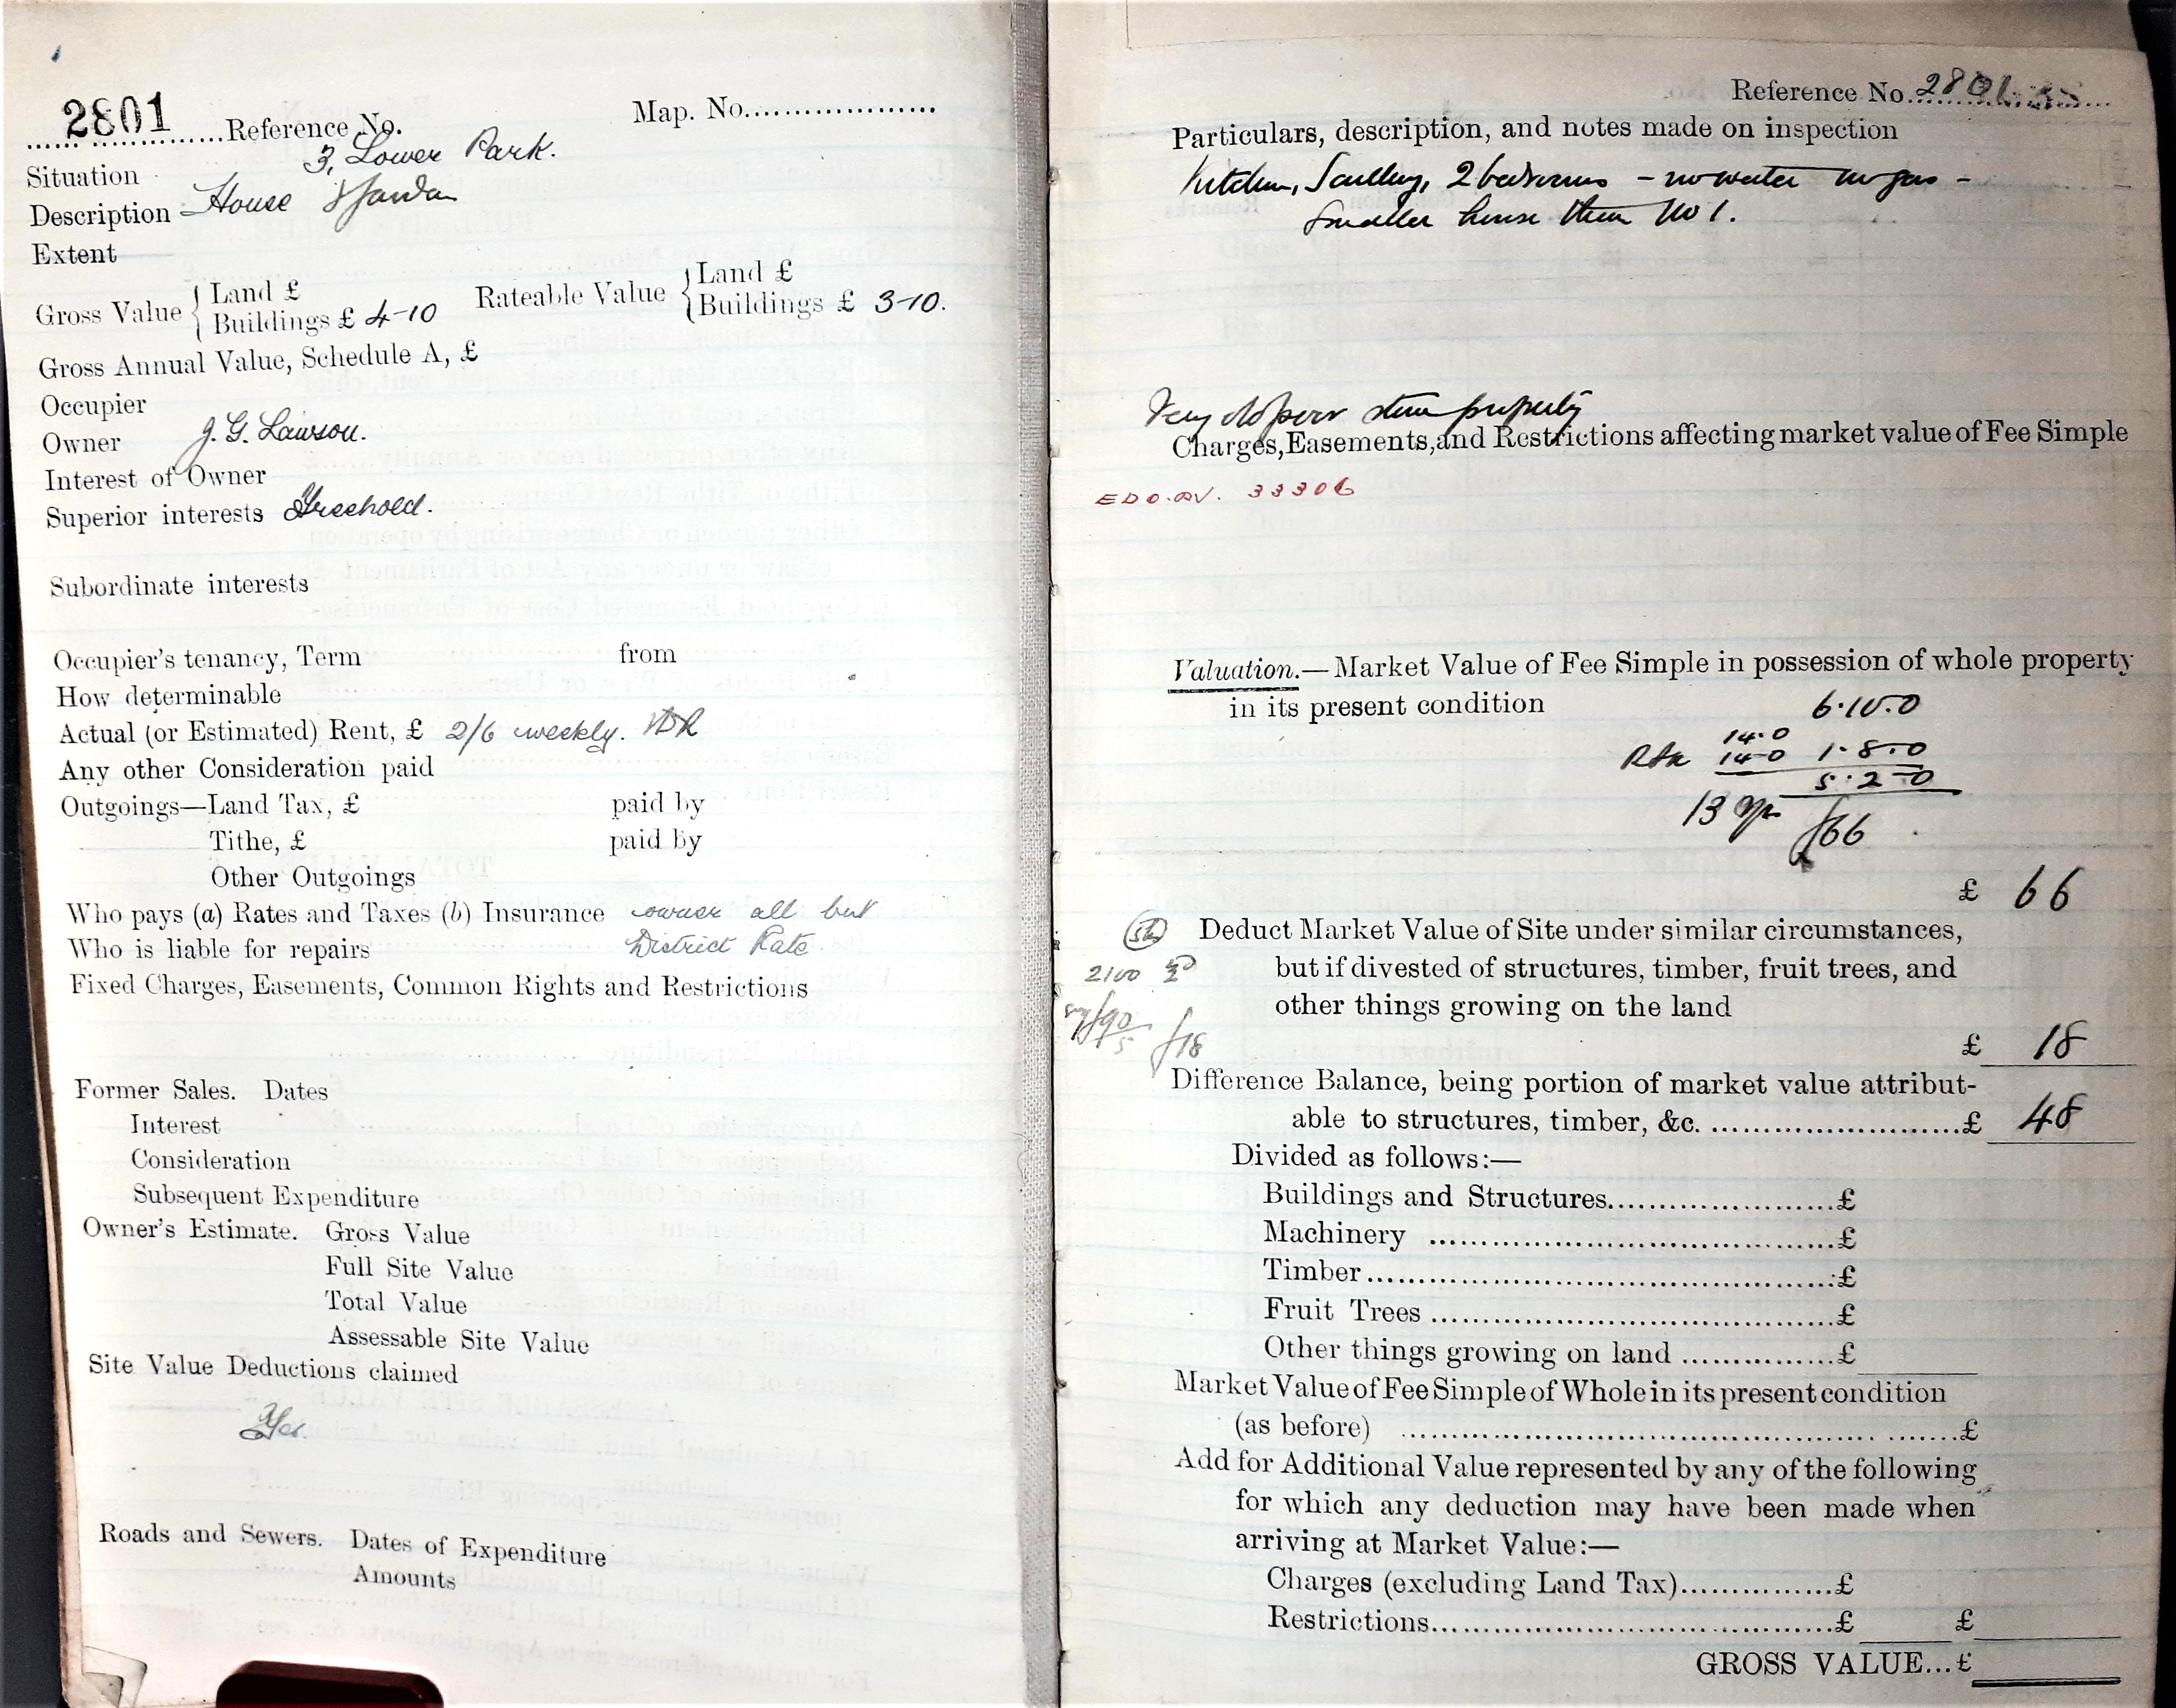 2801
...... ..............Reference No. Map. No....................
Situation 3, Lower Park.
Description House & Garden
Extent
Gross Value { Land £
Buildings £ 4-10
Rateable Value { Land £
Buildings £ 3-10.
Gross Annual Value, Schedule A, £
Occupier
Owner J. G. Lawson.
Interest of Owner
Superior interests Freehold.
Subordinate interests
Occupier's tenancy, Term from
How determinable
Actual (or Estimated) Rent, £ 2/6 weekly.
Any other Consideration paid
Outgoings—Land Tax, £ paid by
Tithe, £ paid by
Other Outgoings
Who pays (a) Rates and Taxes (b) Insurance owner all but
Who is liable for repairs District Rate.
Fixed Charges, Easements, Common Rights and Restrictions
Former Sales. Dates
Interest
Consideration
Subsequent Expenditure
Owner's Estimate. Gross Value
Full Site Value
Total Value
Assessable Site Value
Site Value Deductions claimed
Yes.
Roads and Sewers. Dates of Expenditure
Amounts
Reference No. 2801
Particulars, description, and notes made on inspection
Kitchen, Scullery, 2 bedrooms - no water or gas -
Smaller house than No 1.
Very old poor stone property
Charges, Easements, and Restrictions affecting market value of Fee Simple
33306
Valuation.—Market Value of Fee Simple in possession of whole property
in its present condition 6.10.0
14.0
14-0 1.8.0
5.2-0
13 yp £66
£ 66
Deduct Market Value of Site under similar circumstances,
but if divested of structures, timber, fruit trees, and
other things growing on the land
2100
say £90
5 £18
£ 18
Difference Balance, being portion of market value attribut-
able to structures, timber, &c. ..........................£ 48
Divided as follows:—
Buildings and Structures.......................£
Machinery ..........................................£
Timber................................................£
Fruit Trees ..........................................£
Other things growing on land ................£
Market Value of Fee Simple of Whole in its present condition
(as before) .......................................................£
Add for Additional Value represented by any of the following
for which any deduction may have been made when
arriving at Market Value:—
Charges (excluding Land Tax)................£
Restrictions..........................................£ £
GROSS VALUE...£